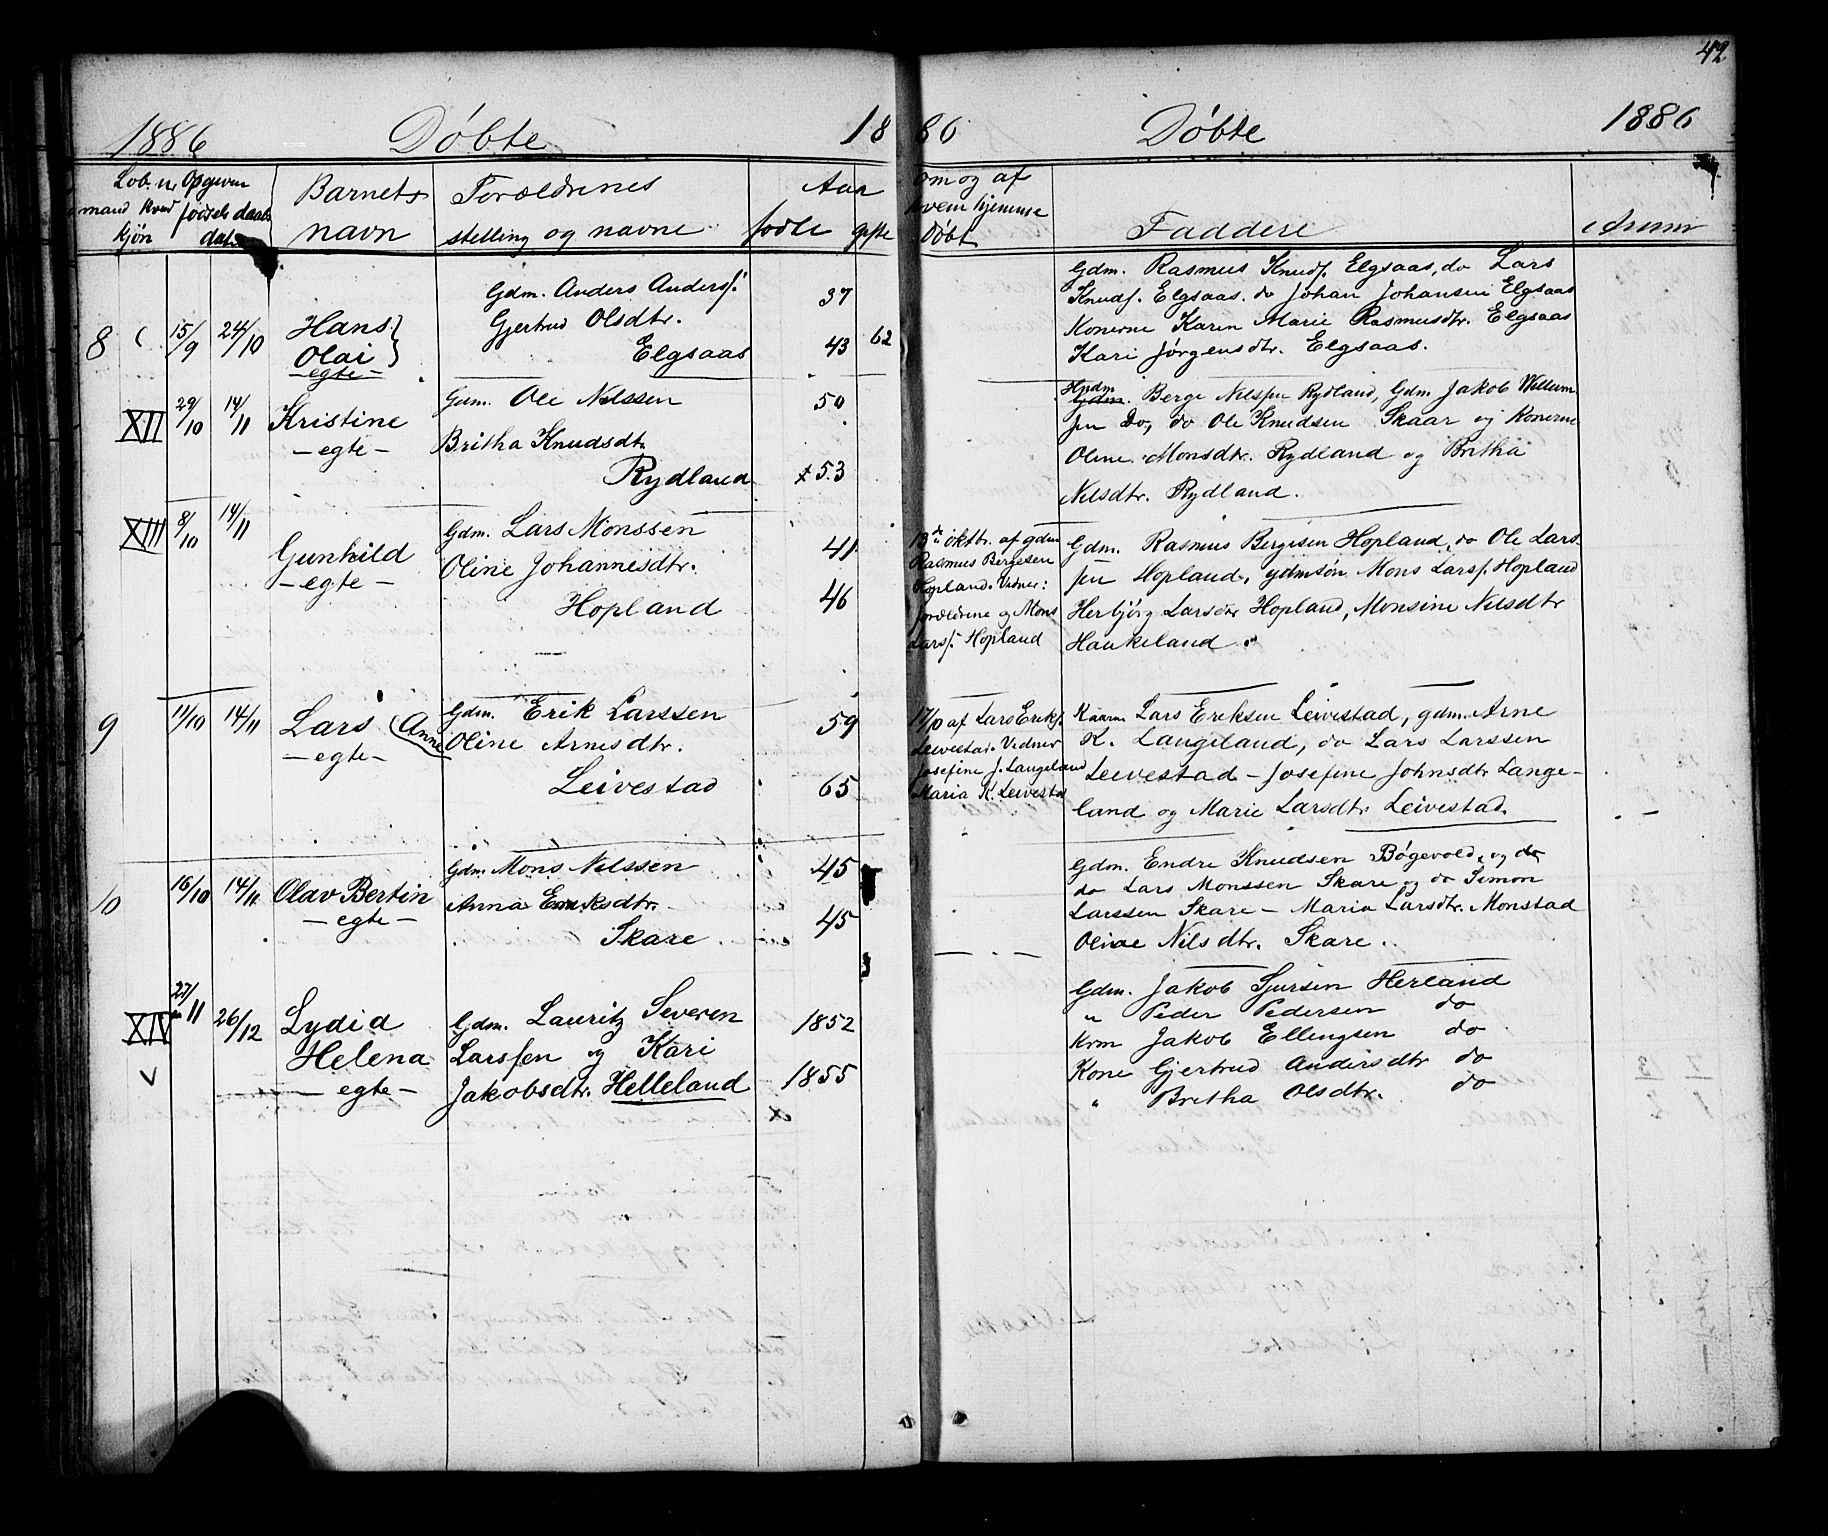 42
1886 Döbte 1886 Döbte 1886
Lob. n. Opgiven Barnets Forældrenes Aar om og af
mand kvind fødsels daabs hvem hjemme
kjön dat. navn stelling og navne fødte gifte Döbt Faddere Anm
8 15/9 24/10 Hans Olai
egte
Gdm. Anders Anders. 37
Gjertrud Olsdtr.
Elgsaas 43 62
Gdm. Rasmus Knuds. Elgsaas, do Lars
Knuds. Elgsaas. do Johan Johansen Elgsaas
Konerne Karen Marie Rasmusdtr. Elgsaas
Kari Jørgensdtr. Elgsaas.
XII 29/10 14/11 Kristine
- egte -
Gdm. Ole Nilssen 50
Britha Knudsdtr
Rydland x 53
Hndm
Gdm. Berge Nilssen Rydland, Gdm Jakob Willum
sen Do, do Ole Knudsen Skaar og Konerne
Oline Monsdtr. Rydland og Britha
Nilsdtr. Rydland.
XIII 8/10 14/11 Gunhild
- egte -
Gdm. Lars Monssen 41
Oline Johannesdtr.
Hopland 46
13de oktbr. af gdm
Rasmus Bergesen
Hopland. Vidner:
forældrene og Mons
Larss. Hopland
Gdm. Rasmus Bergesen Hopland, do Ole Lars
sen Hopland, gdmsön Mons Larss. Hopland
Herbjörg Larsdtr Hopland, Monsine Nilsdtr
Haukeland.
9 11/10 14/11 Lars (Anne
- egte -
Gdm. Erik Larssen 59
Oline Arnesdtr.
Leivestad 65
17/10 af Lars Eriks.
Leivestad. Vidner
Josefine J. Langeland
Maria K. Leivestad
Kaarm Lars Eriksen Leivestad, gdm. Arne
K. Langeland, do Lars Larssen
Leivestad - Josefine Johnsdtr Lange-
land og Marie Larsdtr Leivestad.
10 16/10 14/11 Olav Bertin
- egte -
Gdm. Mons Nilssen 45
Anna Eriksdtr.
Skare 45
Gdm. Endre Knudsen Bøgevold, og do
do Lars Monssen Skare og do Simon
Larssen Skare - Maria Larsdtr. Monstad
Oline Nilsdtr. Skare.
XIV 27/11 26/12 Lydia
Helena
- egte -
Gdm. Lauritz Severin 1852
Larssen og Kari
Jakobsdtr. Helleland 1855
Gdm. Jakob Sjursen Herland
" Peder Pedersen do
Krm Jakob Ellingsen do
Kone Gjertrud Andersdtr do
" Britha Olsdtr. do